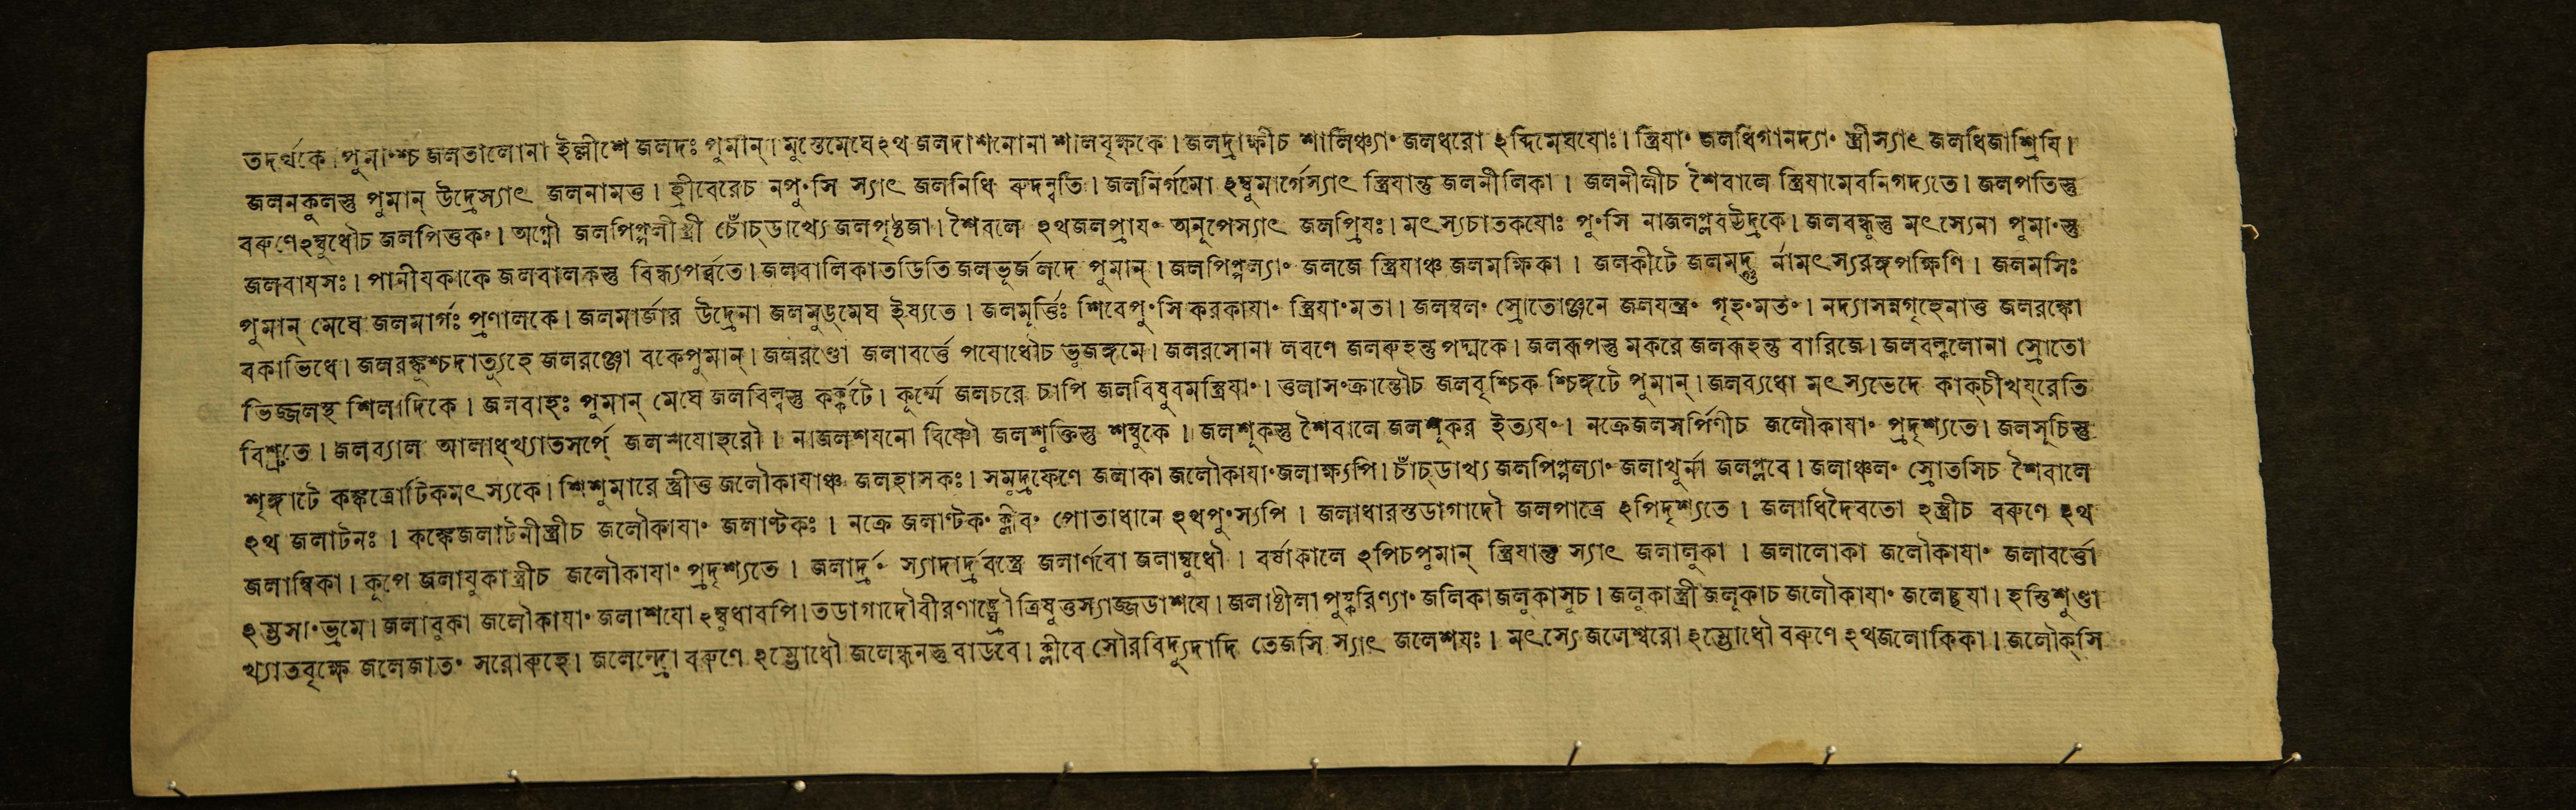 তদর্থকে। পুমাংশ্চ জলতালোনা ইল্লীশে জলদঃ পুমান্। মুস্তেমেঘেঽথ জলদাশনোনা শালবৃক্ষকে। জলদ্রাক্ষীচ শালিঞ্চ্যাং জলধরো ঽব্দিমেঘযোঃ। স্ত্রিযাং জলধিগানদ্যাং স্ত্রীস্যাৎ জলধিজাশ্রিযি।
জলনকুলস্তু পুমান্ উদ্রেস্যাৎ জলনামত্ত। হ্রীবেরেচ নপুংসি স্যাৎ জলনিধি ৰুদন্বতি। জলনির্গমো ঽম্বুমার্গেস্যাৎ স্ত্রিযান্তু জলনীলিকা। জলনীলীচ শৈবালে স্ত্রিযামেবনিগদ্যতে। জলপতিস্তু
বৰুণেঽম্বুধৌচ জলপিত্তকং। অগ্নৌ জলপিপ্পলীস্ত্রী চোঁচ্ডাখ্যে জলপৃষ্ঠজা। শৈবলে ঽথজলপ্রাযং অনুপেস্যাৎ জলপ্রিযঃ। মৎস্যচাতকযোঃ পুংসি নাজলপ্লবউদ্রকে। জলবন্ধুস্তু মৎস্যেনা পুমাংস্তু
জলবাযসঃ। পানীযকাকে জলবালকস্তু বিন্ধ্যপর্ব্বতে। জলবালিকাতডিতি জলভূর্জলদে পুমান্। জলপিপ্পল্যাং জলজে স্ত্রিযাঞ্চ জলমক্ষিকা। জলকীটে জলমদ্গু র্নামৎস্যরঙ্গপক্ষিণি। জলমসিঃ
পুমান্ মেঘে জলমার্গঃ প্রণালকে। জলমার্জার উদ্রেনা জলমুঙ্মেঘ ইষ্যতে। জলমূর্ত্তিঃ শিবেপুংসি করকাযাং স্ত্রিযাংমতা। জলম্বলং স্রোতোঞ্জনে জলযন্ত্রং গৃহংমতং। নদ্যাসন্নগৃহেনাত্ত জলরঙ্কো
বকাভিধে। জলরঙ্কুশ্চদাত্যুহে জলরঞ্জো বকেপুমান্। জলরণ্ডো জলাবর্ত্তে পযোধৌচ ভুজঙ্গমে। জলরসোনা লবণে জলৰুহন্তু পদ্মকে। জলৰূপস্তু মকরে জলৰূহন্তু বারিজে। জলবল্কলোনা স্রোতো
ভিজ্জলস্থ শিলাদিকে। জলবাহঃ পুমান্ মেঘে জলবিল্বস্তু কর্ক্কটে। কূর্ম্মে জলচরে চাপি জলবিষুবমস্ত্রিযাং। ত্তলাসংক্রান্তৌচ জলবৃশ্চিক শ্চিঙ্গটে পুমান্। জলব্যধো মৎস্যভেদে কাক্চীখয্রেতি
বিশ্রুতে। জলব্যাল আলাধ্খ্যাতসর্পে জলশযোহরৌ। নাজলশযনো বিষ্ণৌ জলশুক্তিস্তু শম্বুকে। জলশূকস্তু শৈবালে জলশূকর ইত্যযং। নক্রেজলসর্পিণীচ জলৌকাযাং প্রদৃশ্যতে। জলসূচিস্তু
শৃঙ্গাটে কঙ্কত্রোটিকমৎস্যকে। শিশুমারে স্ত্রীত্ত জলৌকাযাঞ্চ জলহাসকঃ। সমুদ্রফেণে জলাকা জলৌকাযাংজলাক্ষ্যপি। চাঁচ্ডাখ্য জলপিপ্পল্যাং জলাখুর্না জলপ্লবে। জলাঞ্চলং স্রোতসিচ শৈবালে
ঽথ জলাটনঃ। কঙ্কেজলাটনীস্ত্রীচ জলৌকাযাং জলাণ্টকঃ। নক্রে জলাণ্টকং ক্লীবং পোতাধানে ঽথপুংস্যপি। জলাধারস্তডাগাদৌ জলপাত্রে ঽপিদৃশ্যতে। জলাধিদৈবতো ঽস্ত্রীচ বৰুণে ঽথ
জলাম্বিকা। কূপে জলাযুকাস্ত্রীচ জলৌকাযাং প্রদৃশ্যতে। জলার্দ্রং স্যাদার্দ্রবস্ত্রে জলার্ণবো জলাম্বুধৌ। বর্ষাকালে ঽপিচপুমান্ স্ত্রিযান্তু স্যাৎ জলালুকা। জলালোকা জলৌকাযাং জলাবর্ত্তো
ঽম্ভসাংভ্রমে। জলাবুকা জলৌকাযাং জলাশযো ঽম্বুধাবপি। তডাগাদৌবীরণাঙ্ঘ্রৌ ত্রিষুত্তুস্যাজ্জডাশযে। জলাষ্ঠীলা পুষ্করিণ্যাং জলিকাজলুকাসূচ। জলুকাস্ত্রী জলূকাচ জলৌকাযাং জলেচ্ছযা। হস্তিশুণ্ডা
খ্যাতবৃক্ষে জলেজাতং সরোৰুহে। জলেন্দ্রো বৰুণে ঽম্ভোধৌ জলেন্ধনস্তু বাডবে। ক্লীবে সৌরবিদ্যুদাদি তেজসি স্যাৎ জলেশযঃ। মৎস্যে জলেশ্বরো ঽম্ভোধৌ বৰুণে ঽথজলোকিকা। জলৌক্সি